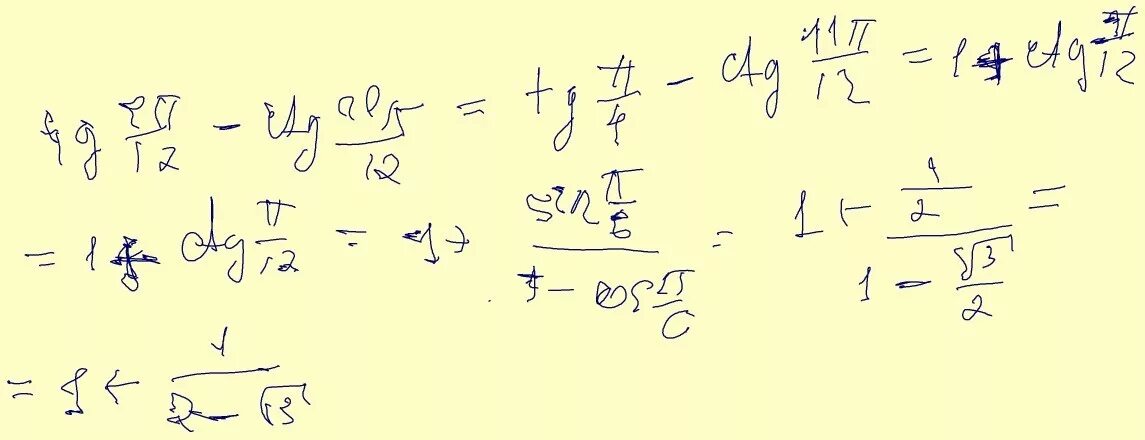 tg 2π/12 - ctg 20π/12 = tg π/4 - ctg 11π/12 = 1 + ctg π/12
= 1 + ctg π/12 = 1 + (sin π/6)/(1 - cos π/6) = 1 + (1/2)/(1 - √3/2) =
= 1 + 1/(2 - √3)